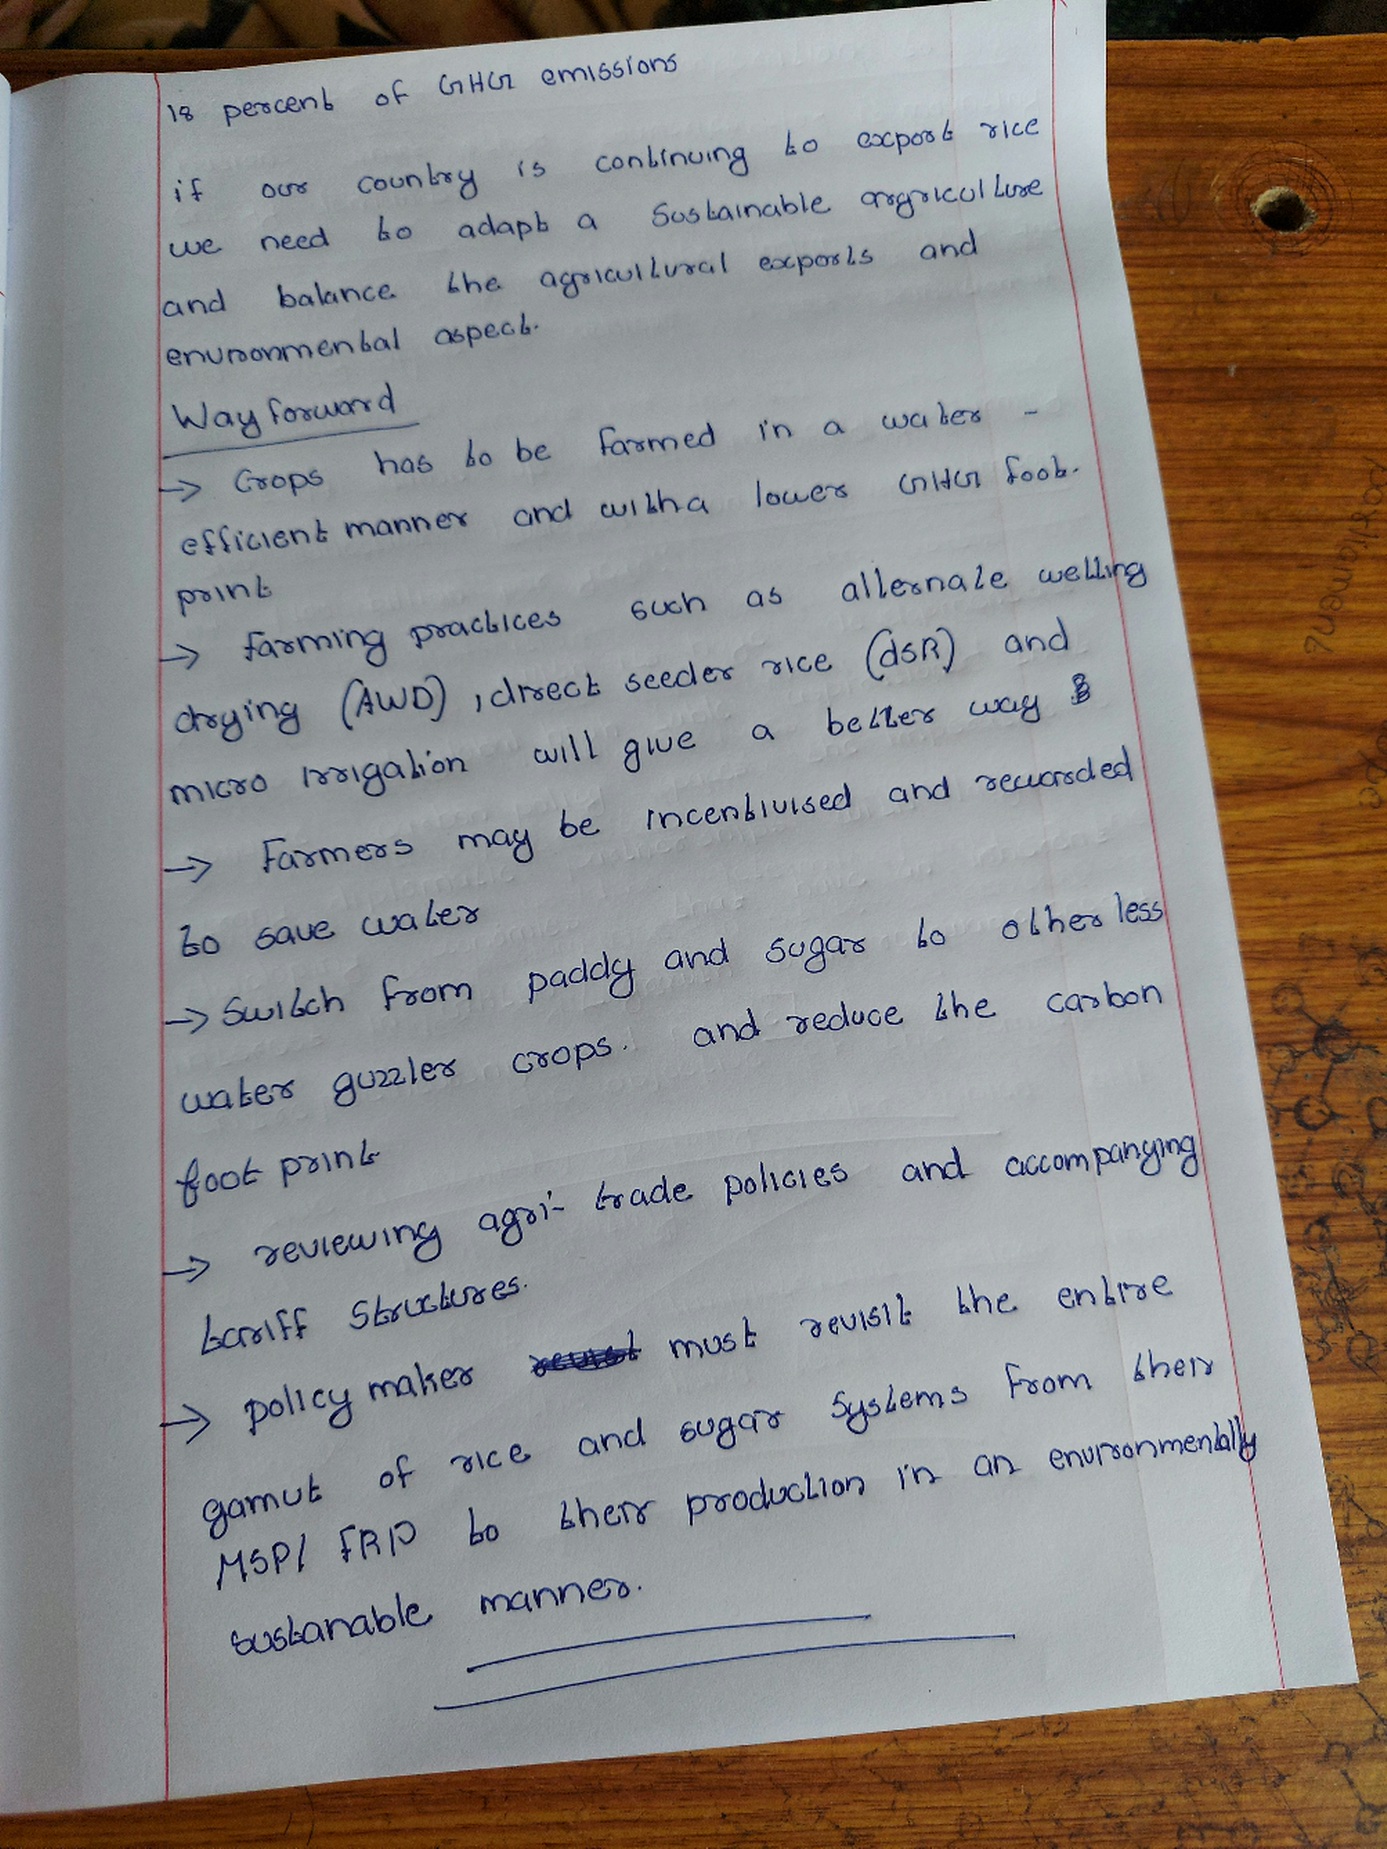 18 percent of GHG emissions
if our country is continuing to export rice
we need to adapt a sustainable argriculture
and balance the agricultural exports and
environmental aspect.
Way forward
→ Crops has to be farmed in a water -
efficient manner and with a lower GHG foot-
print
→ farming practices such as alternate wetting
drying (AWD), direct seeder rice (dSR) and
micro irrigation will give a better way
→ Farmers may be incentivised and rewarded
to save water
→ Switch from paddy and sugar to other less
water guzzler crops. and reduce the carbon
foot print
→ reviewing agri- trade policies and accompanying
tariff structures.
→ policy maker must revisit the entire
gamut of rice and sugar systems from their
MSP/ FRP to their production in an environmentally
sustanable manner.
parliament